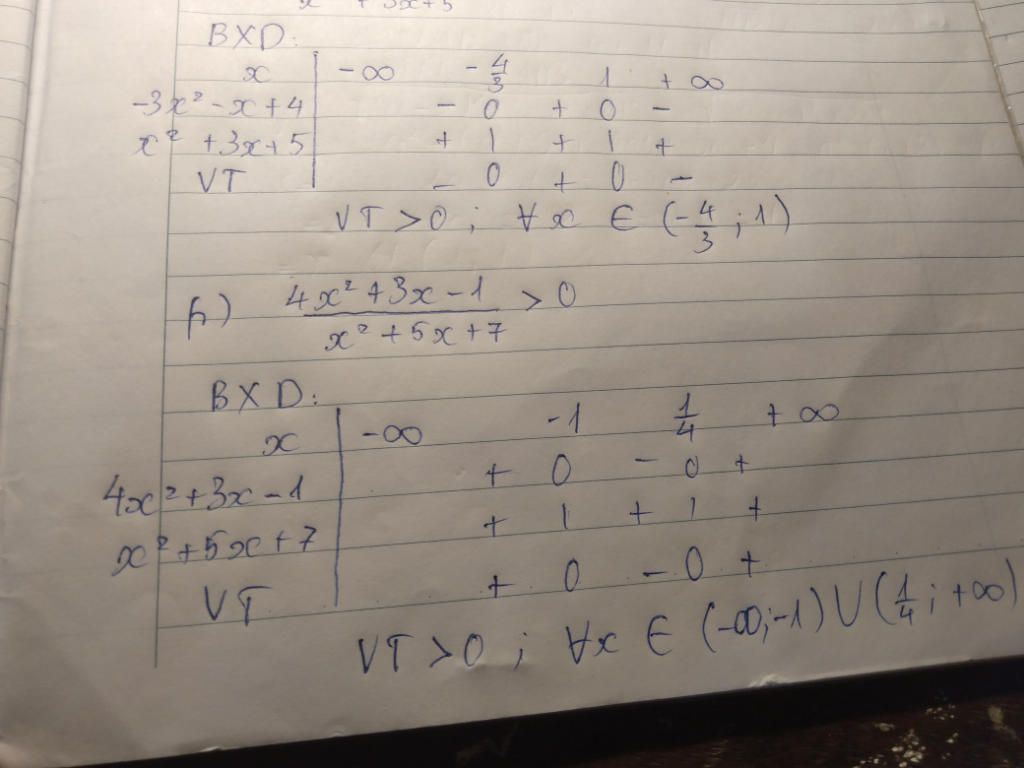 x² + 3x+5
BXD:
x | -∞ -4/3 1 +∞
-3x² - x + 4 | - 0 + 0 -
x² + 3x + 5 | + | + | +
VT | - 0 + 0 -
VT > 0 ; ∀x ∈ (-4/3 ; 1)
h) (4x² + 3x - 1)/(x² + 5x + 7) > 0
BXD:
x | -∞ -1 1/4 +∞
4x² + 3x - 1 | + 0 - 0 +
x² + 5x + 7 | + | + | +
VT | + 0 - 0 +
VT > 0 ; ∀x ∈ (-∞;-1) ∪ (1/4 ; +∞)